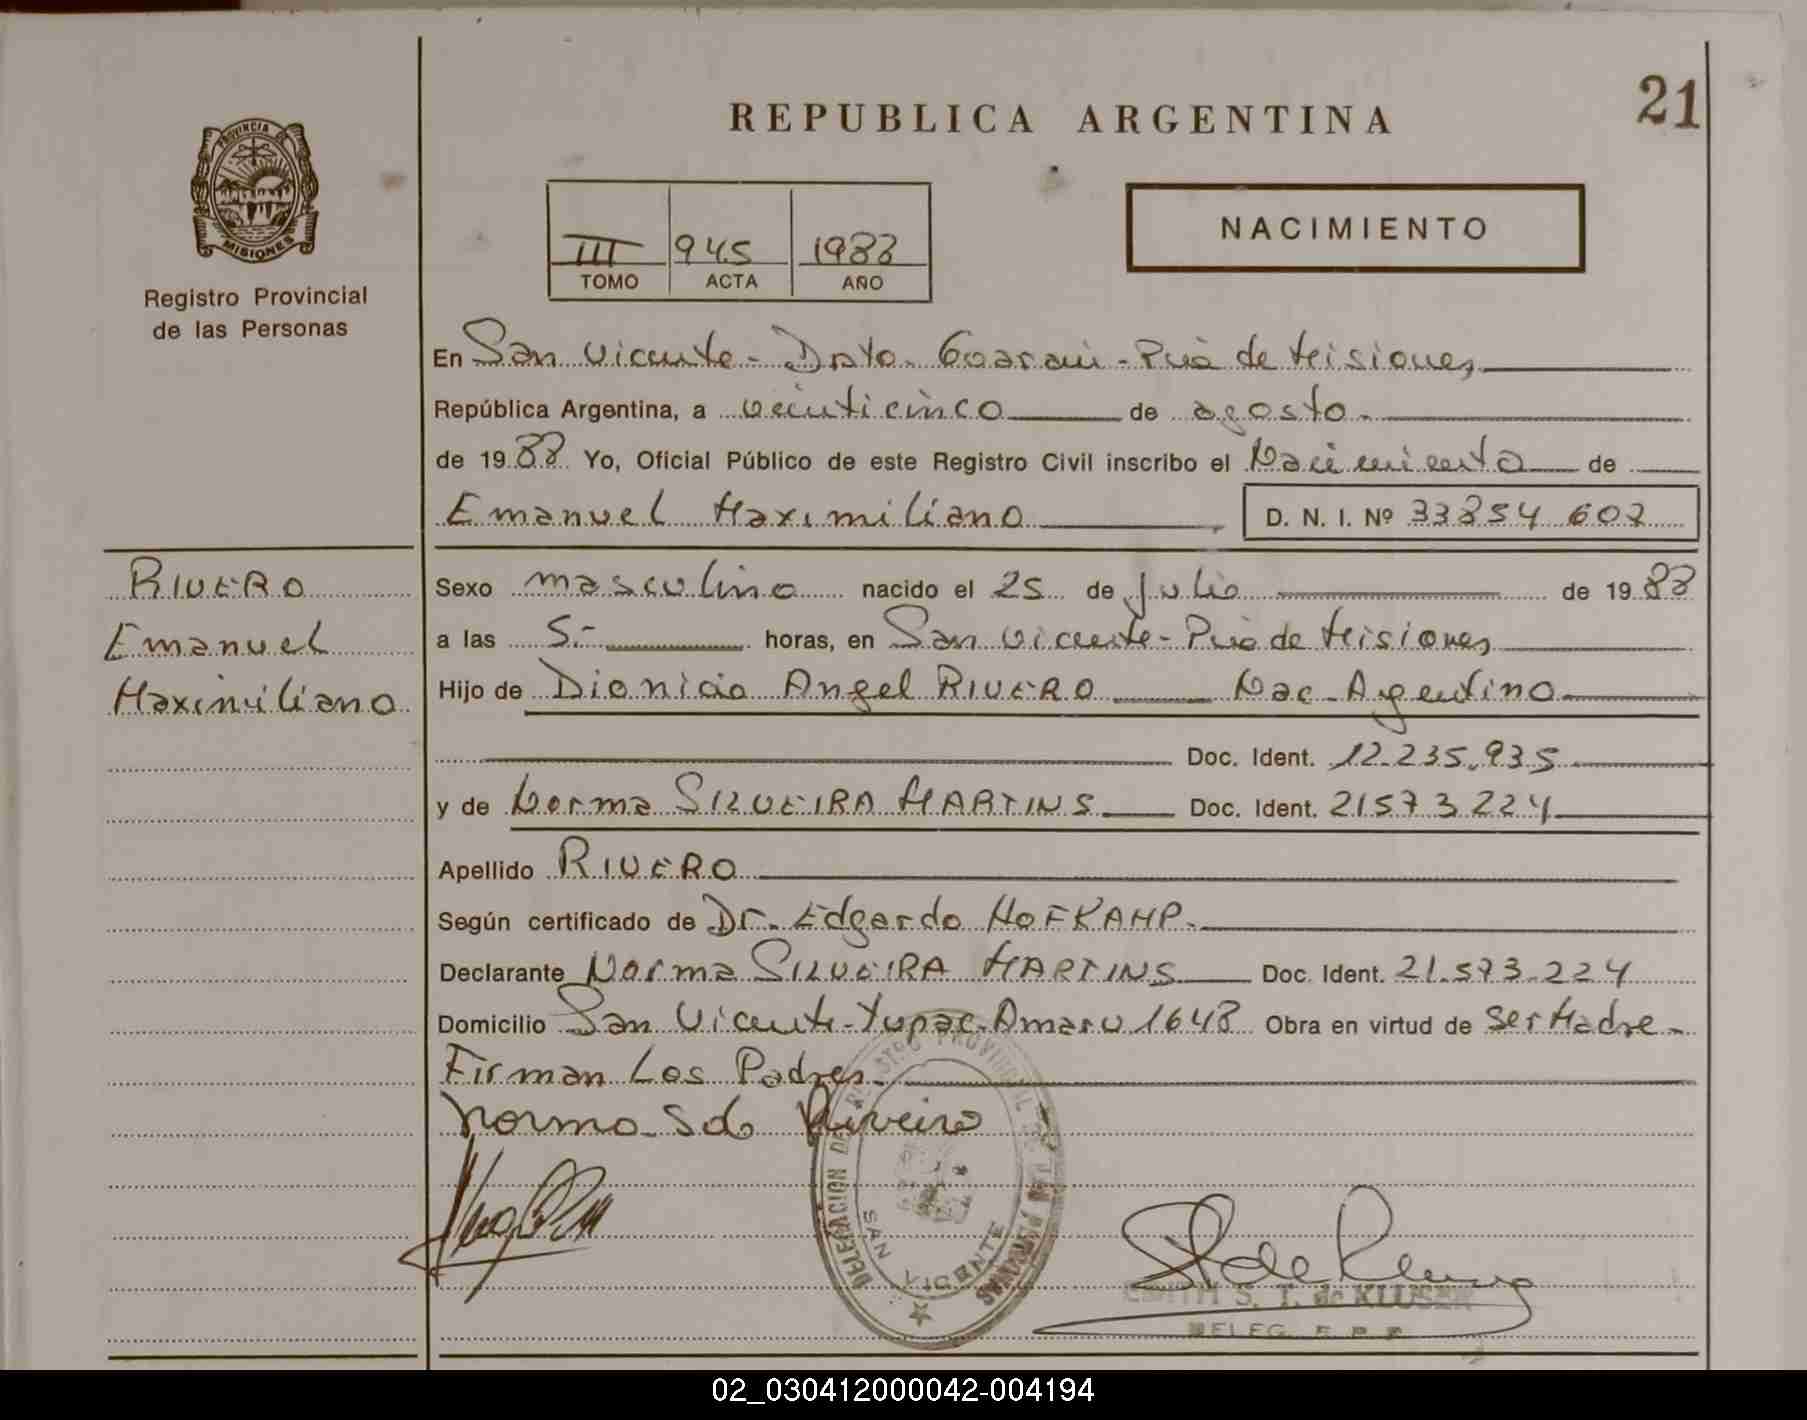 21
REPUBLICA ARGENTINA
PROVINCIA DE
MISIONES
Registro Provincial
de las Personas
III 945 1988
TOMO ACTA AÑO
NACIMIENTO
En San Vicente - Dpto. Guaraní - Pcia de Misiones
República Argentina, a veinticinco de agosto.
de 1988 Yo, Oficial Público de este Registro Civil inscribo el Nacimiento de
Emanuel Maximiliano D. N. I. Nº 33854 607
RIVERO
Emanuel
Maximiliano
Sexo masculino nacido el 25 de Julio de 1988
a las 5.- horas, en San Vicente - Pcia de Misiones
Hijo de Dionicio Angel RIVERO Nac. Argentino
Doc. Ident. 12.235.935
y de Norma SILVEIRA MARTINS Doc. Ident. 21573224
Apellido RIVERO
Según certificado de Dr. Edgardo HOFKAMP.
Declarante Norma SILVEIRA MARTINS Doc. Ident. 21.573.224
Domicilio San Vicente - Tupac Amaru 1648 Obra en virtud de ser Madre.
Firman Los Padres.
Norma S do
DELEGACION DEL REGISTRO PROVINCIAL DE LAS PERSONAS
SAN VICENTE
EDITH S. T. de KLUSEN
DELEG.
02_030412000042-004194